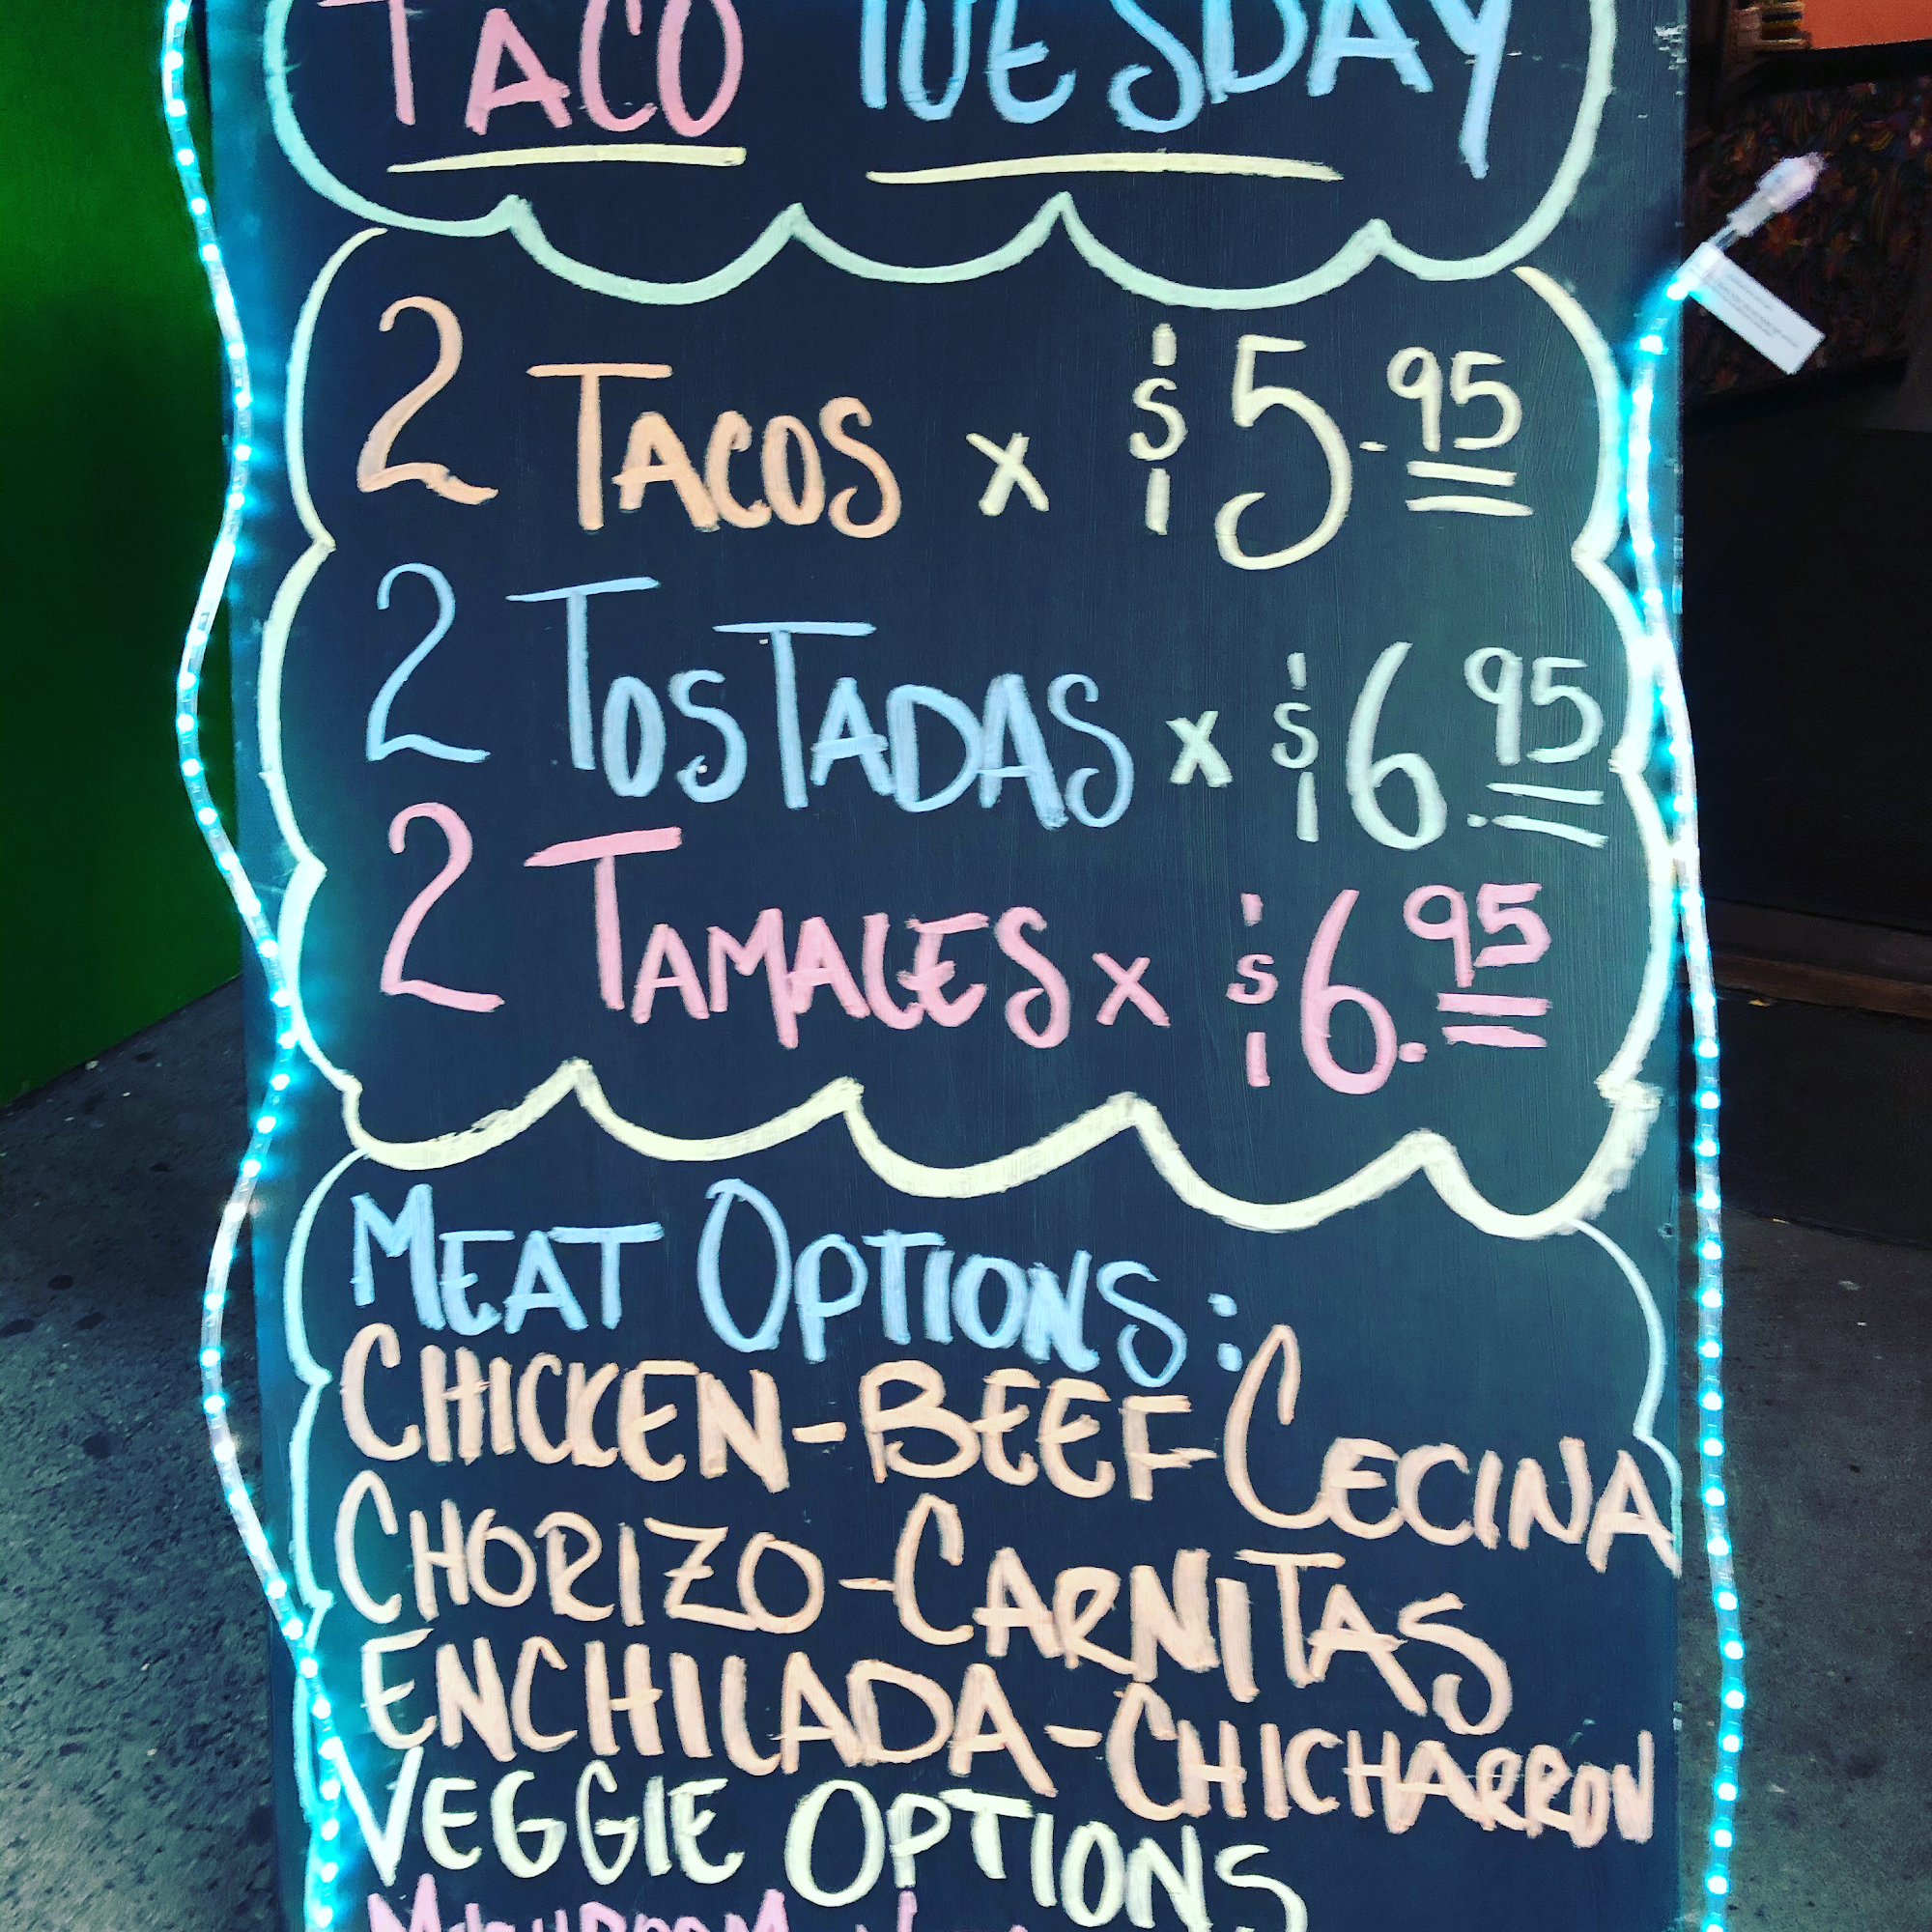 TACO TUESDAY
2 TACOS x $5.95
2 TOSTADAS x $6.95
2 TAMALES x $6.95
MEAT OPTIONS:
CHICKEN-BEEF-CECINA
CHORIZO-CARNITAS
ENCHILADA-CHICHARRON
VEGGIE OPTIONS
MUSHROOM